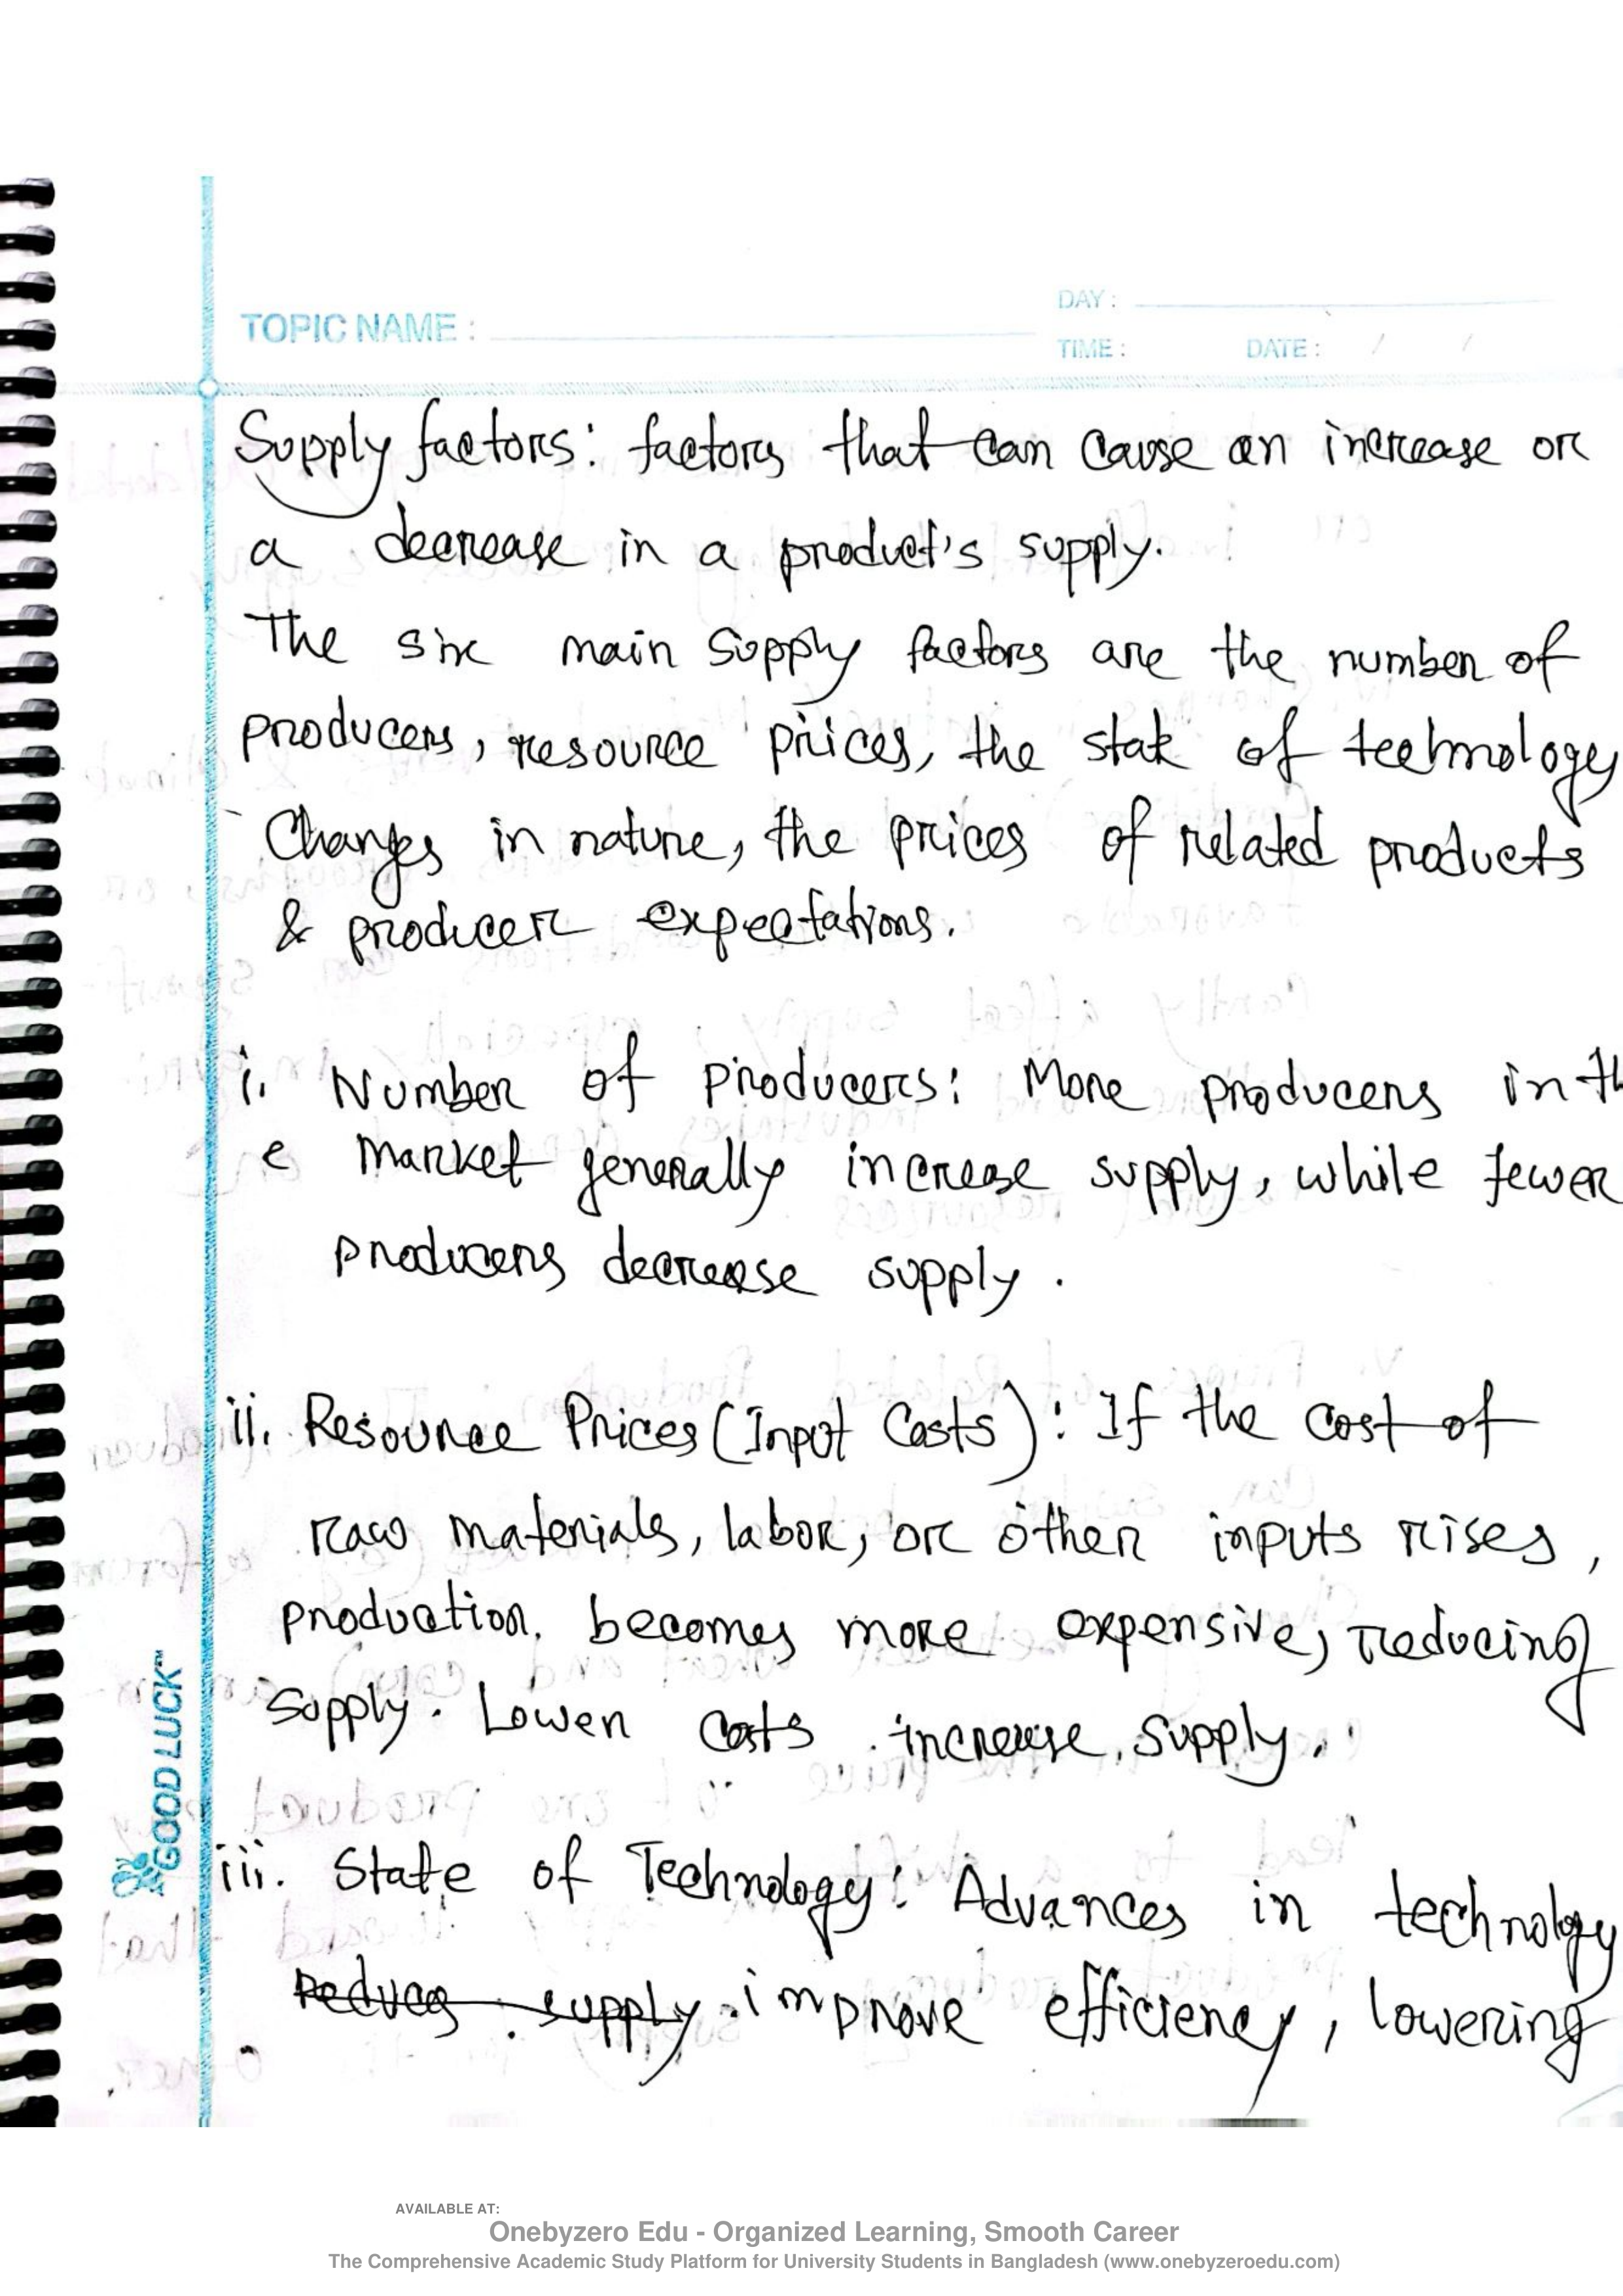 DAY :
TOPIC NAME :
TIME : DATE : / /
Supply factors: factors that can cause an increase or
a decrease in a product's supply.
The six main supply factors are the number of
producers, resource prices, the state of technology
Changes in nature, the prices of related products
& producer expectations.
i. Number of producers: More producers in th
e market generally increase supply, while fewer
producers decrease supply.
ii. Resource Prices (Input Costs): If the cost of
raw materials, labor, or other inputs rises,
production. becomes more expensive, reducing
supply. Lower costs increase supply.
iii. State of Technology: Advances in technology
Reduces supply improve efficiency, lowering
GOOD LUCK™
AVAILABLE AT:
Onebyzero Edu - Organized Learning, Smooth Career
The Comprehensive Academic Study Platform for University Students in Bangladesh (www.onebyzeroedu.com)